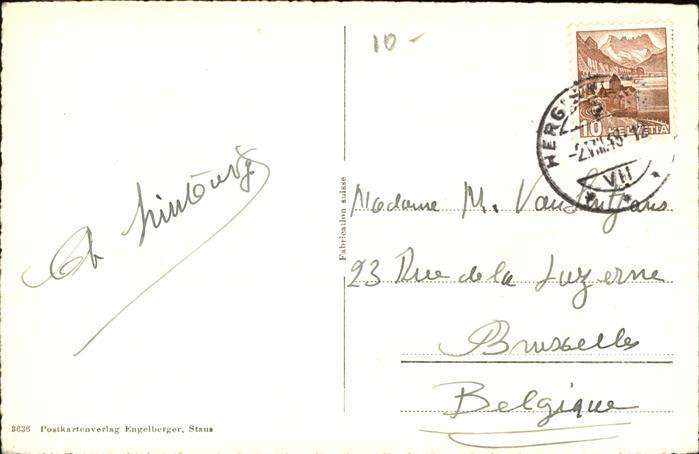 10 -
10 HELVETIA
HERGISWIL
VII
Ch
Fabrication suisse
Madame M.
23 Rue de la Luzerne
Bruxelles
Belgique
3636 Postkartenverlag Engelberger, Stans